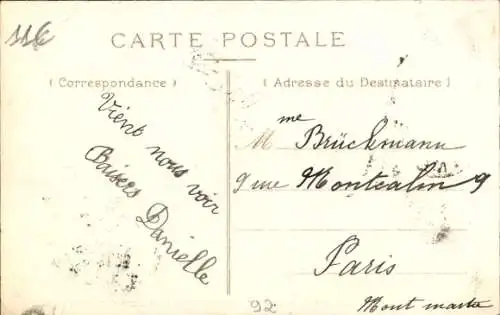 116
CARTE POSTALE
( Correspondance )
( Adresse du Destinataire )
Vient nous voir
Baisers Danielle
Mme Brückmann
9 rue Montcalm 9
Paris
Mont martre
92